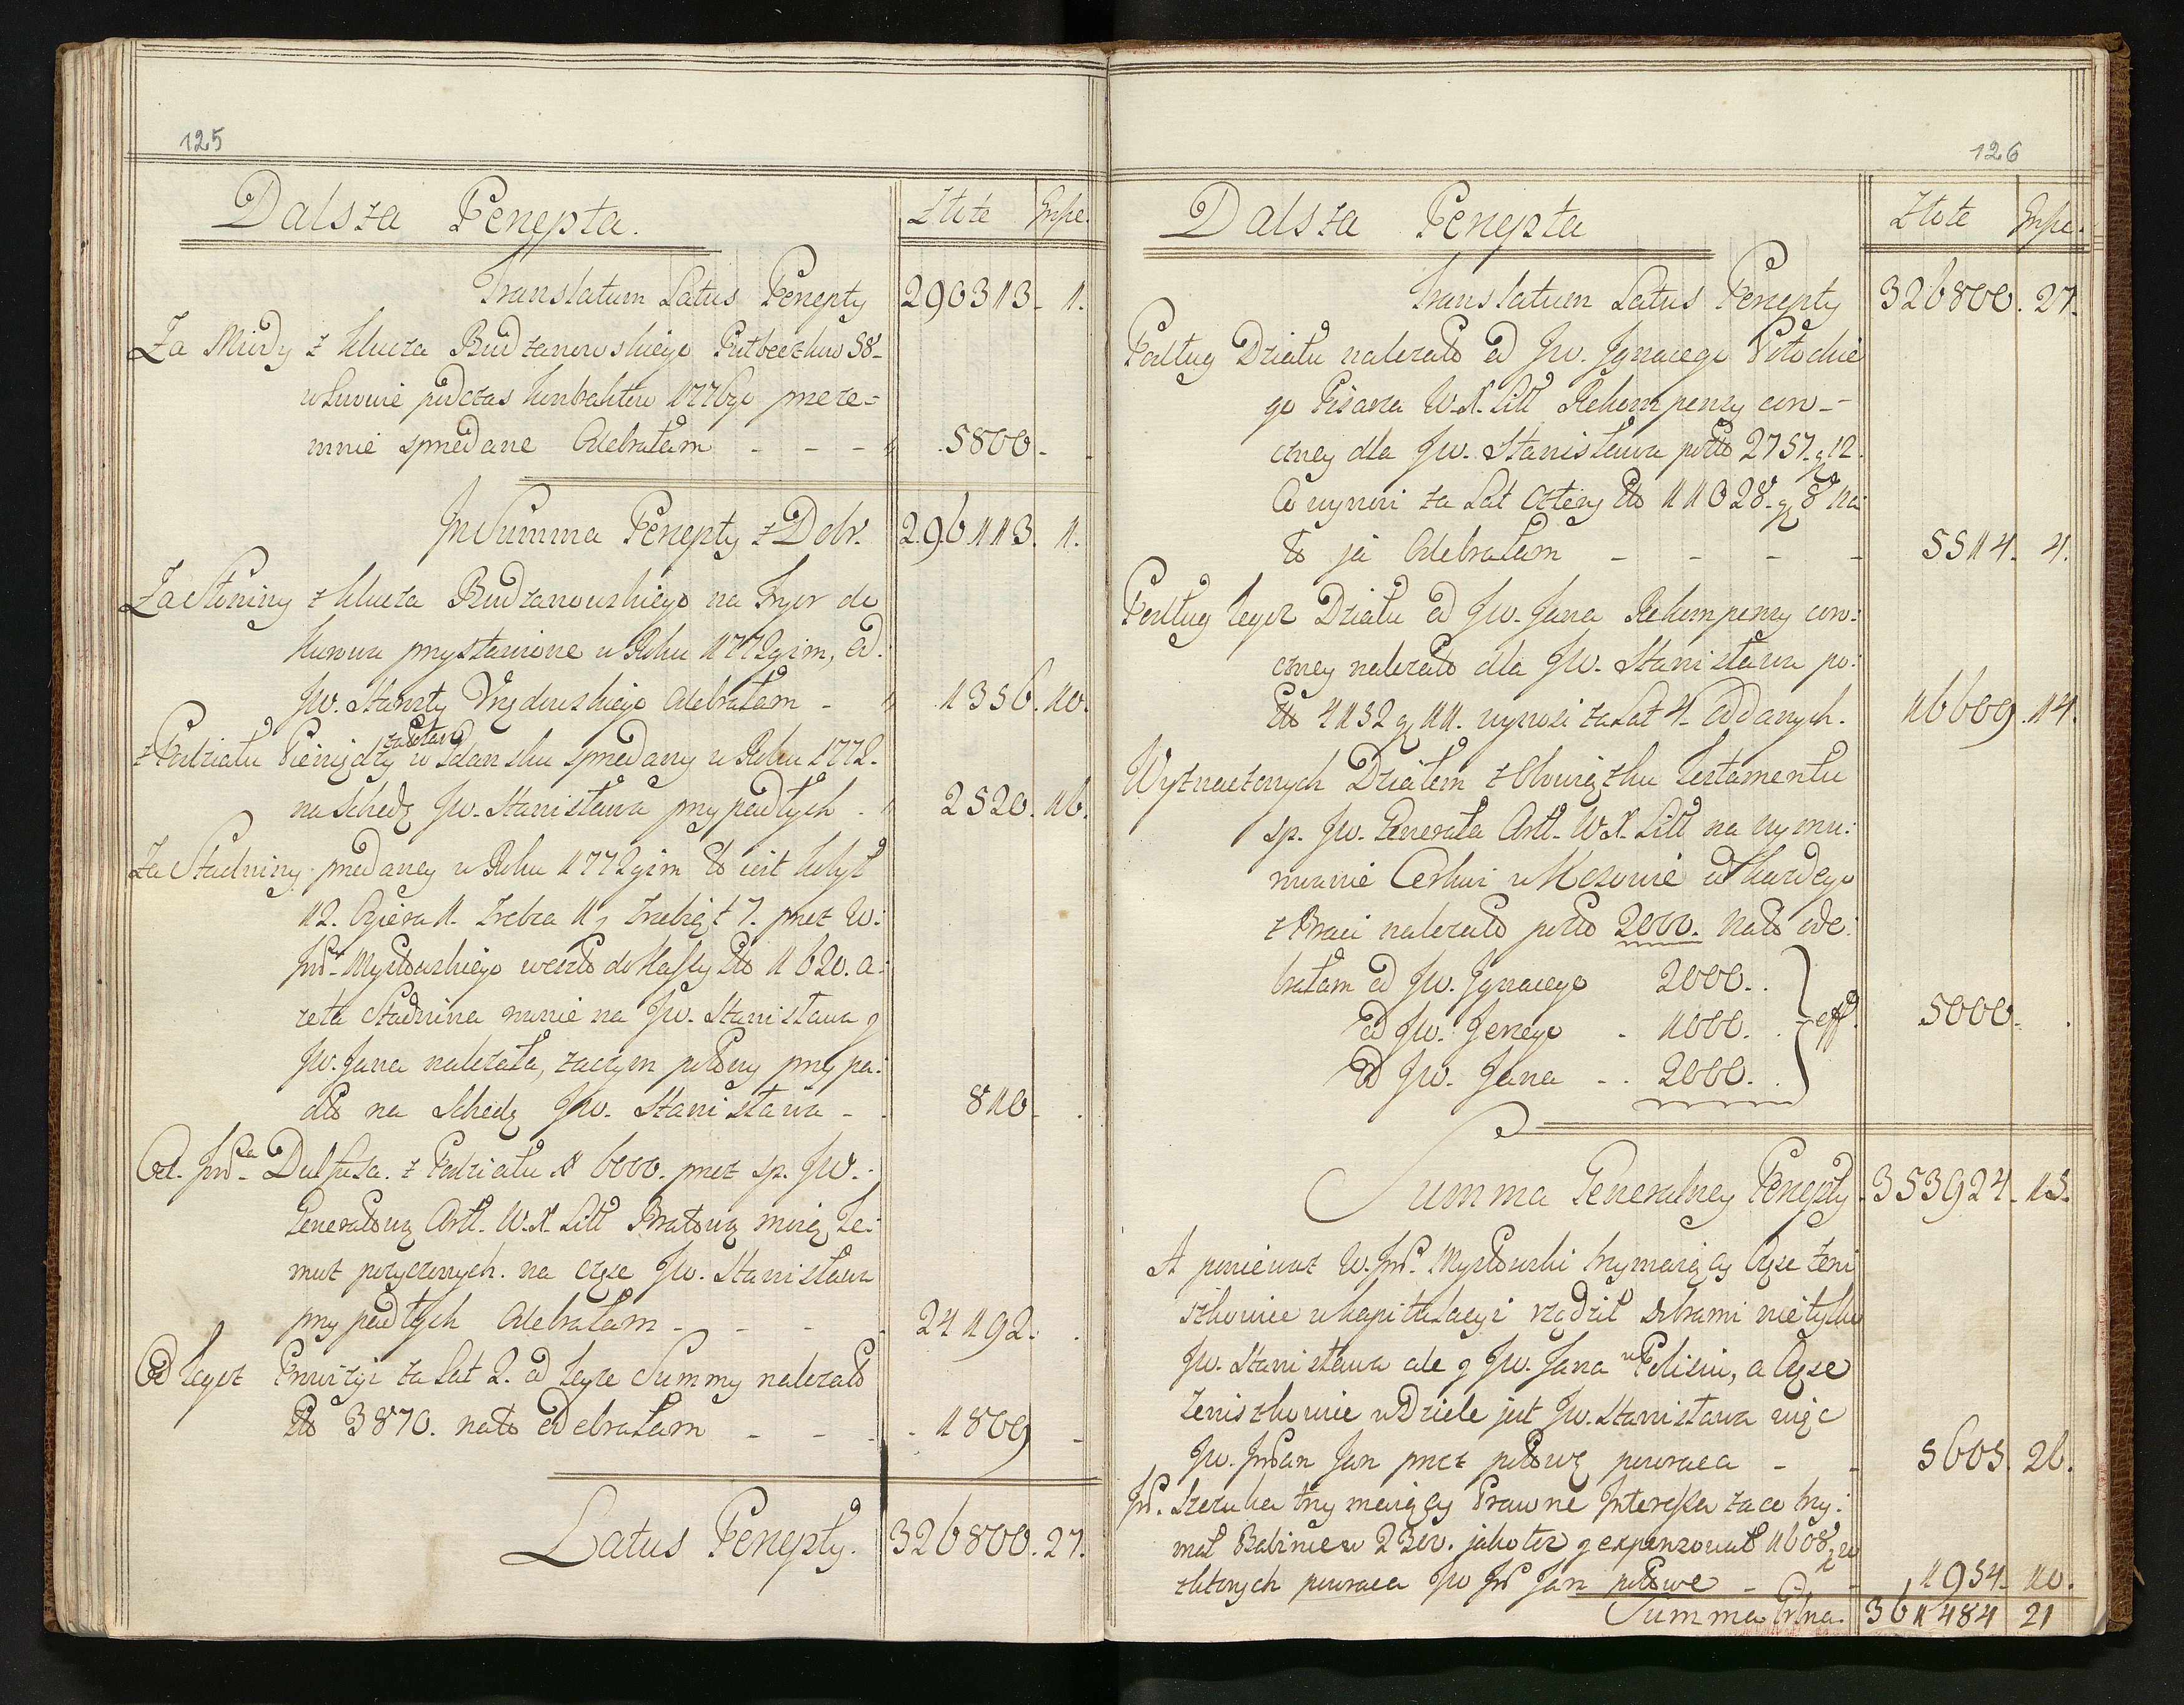 125
Dalsza Percepta.
Złote Grosze.
Translatum Latus Percepty 290313 1.
Za Miody z klucza Budzanowskiego Półbeczków 58
w Lwowie podczas kontraktów 1776go przeze-
mnie sprzedane Odebrałam - - - 5800 -
In Summa Percepty z Dobr. 296113. 1.
z klucza Budzanowskiego na Fryor do
przystawione w Roku 1772gim, od
Jw. Starosty Odebrałam - 1356. 10.
z Podziału Pieniędzy za w Gdańsku sprzedany w Roku 1772.
na Schedę Jw. Stanisława przypadłych - 2520. 16.
Za Stadninę przedaney w Roku 1772gim to iest kobył
12. Ogiera 1. Zrebca 1, Zrebiąt 7. przez W:
Jmć Mysłowskiego weszło do Kassy zło 1620. a:
że ta Stadnina mnie na Jw. Stanisława y
Jw. Jana należała, zaczym połowy przypa:
dło na Schedę Jw. Stanisława - 810 -
Od. Jmć Pa Dulfusa. z Podziału # 6000. przez sp. Jw:
Generałową Artl. W.X. Litt Bratową moię Te:
muż pożyczonych. na część Jw. Stanisława
przypadłych Odebrałam - - - 24192.
Od tegoż Prowizyi za Lat 2. od teyże Summy należało
zło 3870. na to odebrałam - - - 1809 -
Latus Percepty. 326800. 27.
126
Dalsza Percepta
Złote Grosze.
Translatum Latus Percepty 326800. 27.
Podług Działu należało od Jw. Ignacego Potockie
go Pisarza W.X. Litt Rekompensy coro-
czney dla Jw. Stanisława po zło 2757. g 12.
Co wynosi za Lat cztery zło 11028. g 8 na
to ja Odebrałam - - - - 5514. 4.
Podług tegoż Działu od Jw. Jana Rekompensy coro:
czney należało dla Jw. Stanisława po:
zło 4152 g 11. wynosi za Lat 4. oddanych. 16609. 14.
Wyznaczonych Działem z Obowiązku Testamentu
sp. Jw. Generała Artl. W.X. Litt na wymu:
rowanie Cerkwi w Kozowie od kazdego
z Braci należało po zło 2000. Na to ode:
brałam od Jw. Ignacego 2000. .
od Jw. Jerzego . 1000. . eff. 5000.
od Jw. Jana . . 2000. .
Summa Generalney Percepty. 353924. 15.
A ponieważ W. Jmć. Mysłowski trzymaiący Część Zeni
szkowiec w kapitulacyi rządził dobrami nietylko
Jw. Stanisława ale y Jw. Jana w Polisiu, a Część
Zeniszkowiec w Dziele jest Jw. Stanisława więc
Jw. Jmć Pan Jan przez połowę powraca - - 5605. 26.
Jmć. trzymaiący Prawne Interessa za co trzy:
mał Babince w 2300. jako też y expensował 1608 g 20
z których powraca Jw Jmć Jan połowe - - 1954. 10.
Summa 361484 21